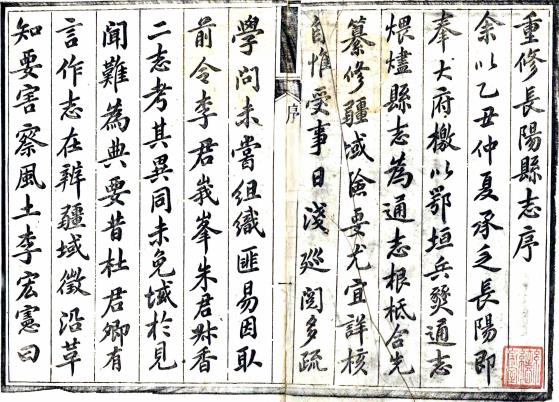 重修長陽縣志序
余以乙丑仲夏承乏長陽即
奉大府檄以鄂垣兵燹通志
煨燼縣志為通志根柢合先
纂修疆域險要尤宜詳核
自惟受事日淺巡閱多疏
序
學問未嘗組織匪易因取
前令李君峩峯朱君香
二志考其異同未免域於見
聞難為典要昔杜君卿有
言作志在辨疆域徵沿革
知要害察風土李宏憲曰